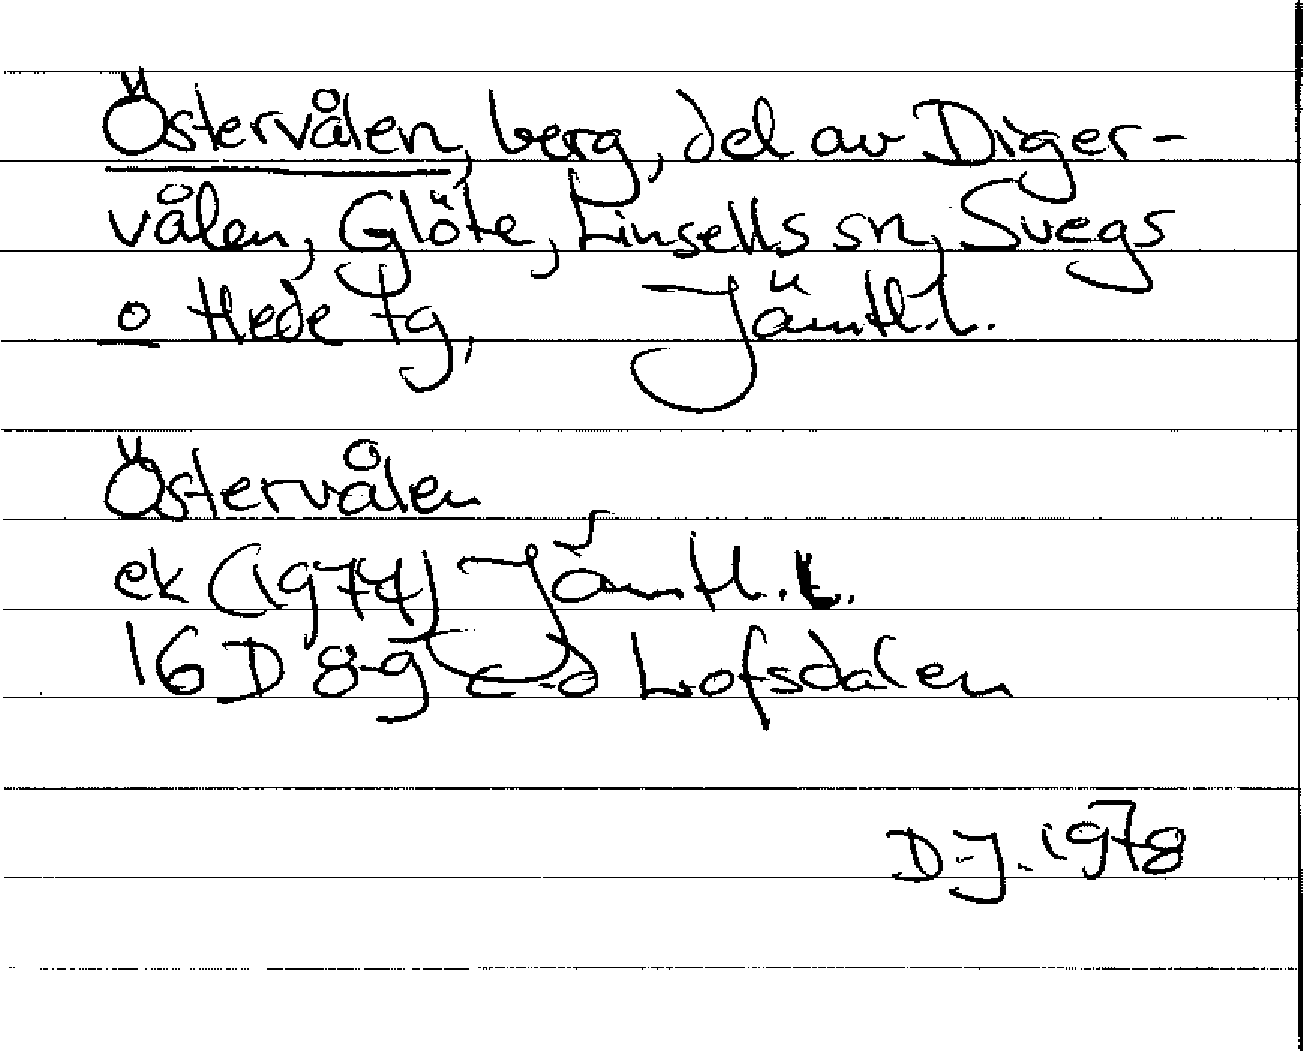 Östervålen, berg, del av Diger-
vålen, Glöte, Linsells sn, Svegs
o Hede tg, Jämtl.l.
Östervålen
ek (1974) Jämtl.L.
16 D 8-g c-d Lofsdalen
D-J. 1978